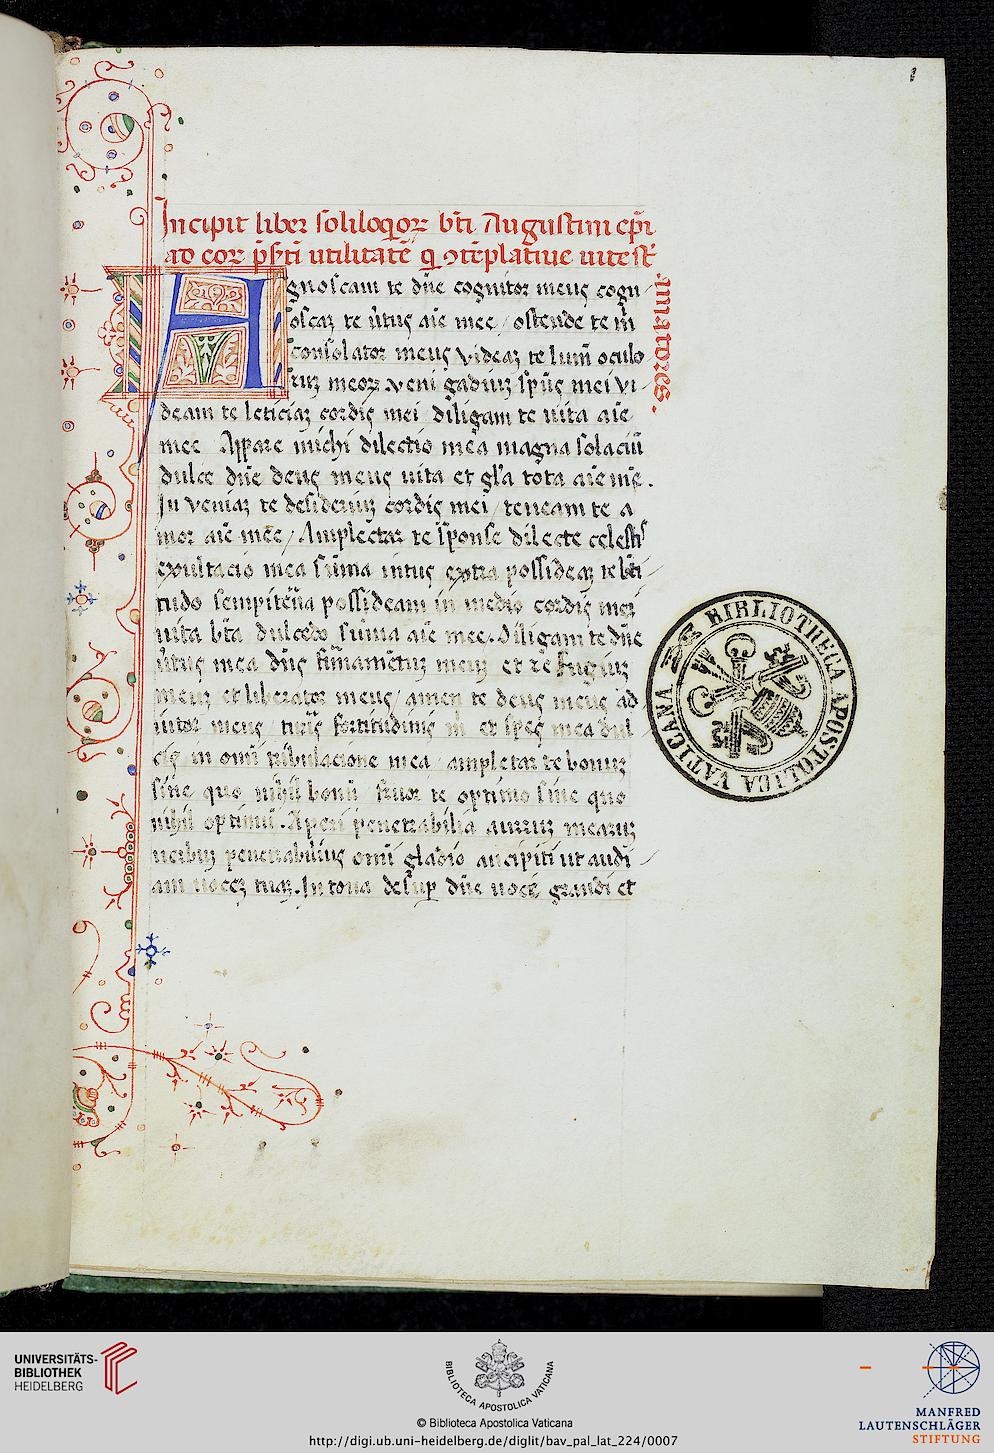 Incipit liber soliloqor bti Augustini epi
ad eor psti utilitate q 9teplatiue uite st
amatores.
Agnoscam te dne cognitor meus cogn
oscaz te utus aie mee / ostende te m
consolator meus videaz te lum oculo
ruz meoz. veni gadiuz spus mei vi
deam te leticiaz cordis mei diligam te uita aie
mee Appare michi dilectio mea magna solaciu
dulce dne deus meus uita et gla tota aie me.
In veniaz te desideriuz cordis mei / teneam te a
mor aie mee / Amplectar te sponse dilecte celestis
exultacio mea suma intus extra possideaz te bti
tudo sempiterna possideam in medio cordis mei
uita bta dulcedo suma aie mee. Diligam te dne
utus mea dns firmametuz meuz et refugiuz
meuz et liberator meus / amem te deus meus ad
iutor meus / turis fortitudinis m et spes mea dul
cis in omi tribulacione mea / ampletar te bonuz
sine quo nihil bonu fruor te optimo sine quo
nihil optimu. Aperi penetrabilia auriuz mearuz
uerbuz penetrabilius omi gladio ancipiti ut audi
am uocez tuaz. Intona desup dne uoce grandi et
BIBLIOTHECA APOSTOLICA VATICANA
UNIVERSITÄTS-
BIBLIOTHEK
HEIDELBERG
BIBLIOTECA APOSTOLICA VATICANA
© Biblioteca Apostolica Vaticana
http://digi.ub.uni-heidelberg.de/diglit/bav_pal_lat_224/0007
MANFRED
LAUTENSCHLÄGER
STIFTUNG